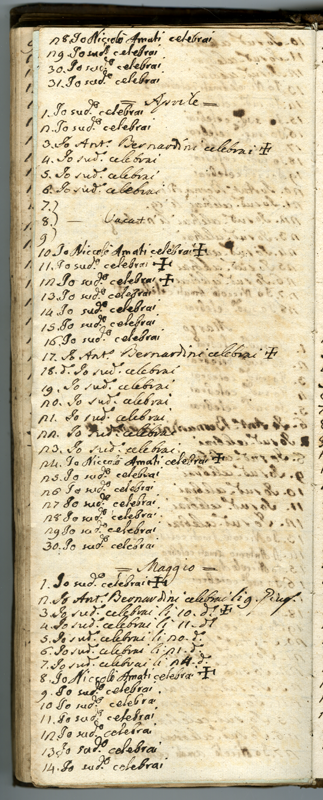 28. Io Niccolò Amati celebrai
29. Io sud.º celebrai
30. Io sud.º celebrai
31. Io sud.º celebrai
= Aprile =
1. Io sud.º celebrai
2. Io sud.º celebrai
3. Io Ant.º Bernardini celebrai ✠
4. Io sud.º celebrai
5. Io sud.º celebrai
6. Io sud.º celebrai
7.)
8.) —
9)
10. Io Niccolò Amati celebrai ✠
11. Io sud.º celebrai ✠
12. Io sud.º celebrai ✠
13. Io sud.º celebrai
14. Io sud.º celebrai
15. Io sud.º celebrai
16. Io sud.º celebrai
17. Io Ant.º Bernardini celebrai ✠
18. Io sud.º celebrai
19. Io sud.º celebrai
20. Io sud.º celebrai
21. Io sud.º celebrai
22. Io sud.º celebrai
23. Io sud.º celebrai
24. Io Niccolò Amati celebrai ✠
25. Io sud.º celebrai
26 Io sud.º celebrai
27 Io sud.º celebrai
28 Io sud.º celebrai
29 Io sud.º celebrai
30. Io sud.º celebrai
= Maggio =
1. Io sud.º celebrai ✠
2. Io Ant.º Bernardini celebrai li 9. Giug.
3. Io sud.º celebrai li 10. d.º ✠
4. Io sud.º celebrai li 11. d.º
5. Io sud.º celebrai li 20. d.º
6. Io sud.º celebrai li 21. d.º
7. Io sud.º celebrai li 24. d.º
8. Io Niccolò Amati celebrai ✠
9. Io sud.º celebrai
10 Io sud.º celebrai
11. Io sud.º celebrai
12. Io sud.º celebrai
13. Io sud.º celebrai
14. Io sud.º celebrai